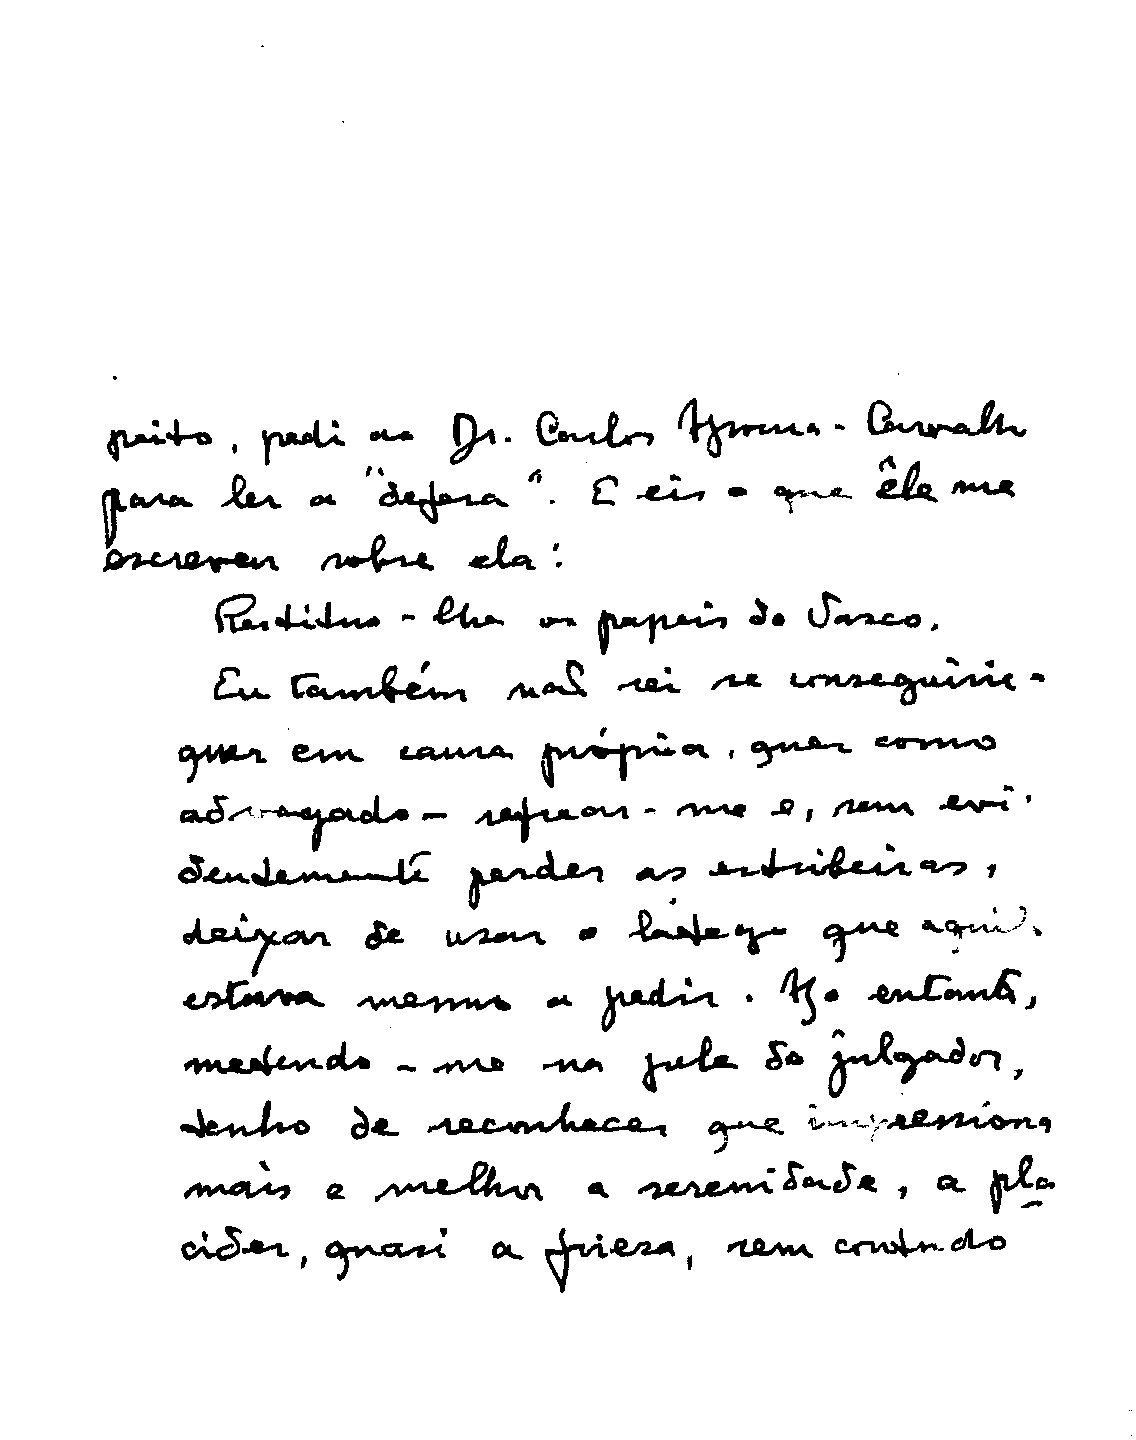 peito, pedi ao Dr. Carlos Carvalho
para ler a "defesa". E eis o que êle me
escreveu sobre ela:
Restituo-lhe os papeis do Vasco.
Eu também não sei se conseguiria -
quer em causa própria, quer como
advogado - refrear-me e, sem evi-
dentemente perder as estribeiras,
deixar de usar o látego que aqui
estava mesmo a pedir. No entanto,
metendo-me na pele do julgador,
tenho de reconhecer que impressiona
mais e melhor a serenidade, a pla
cidez, quasi a frieza, sem contudo